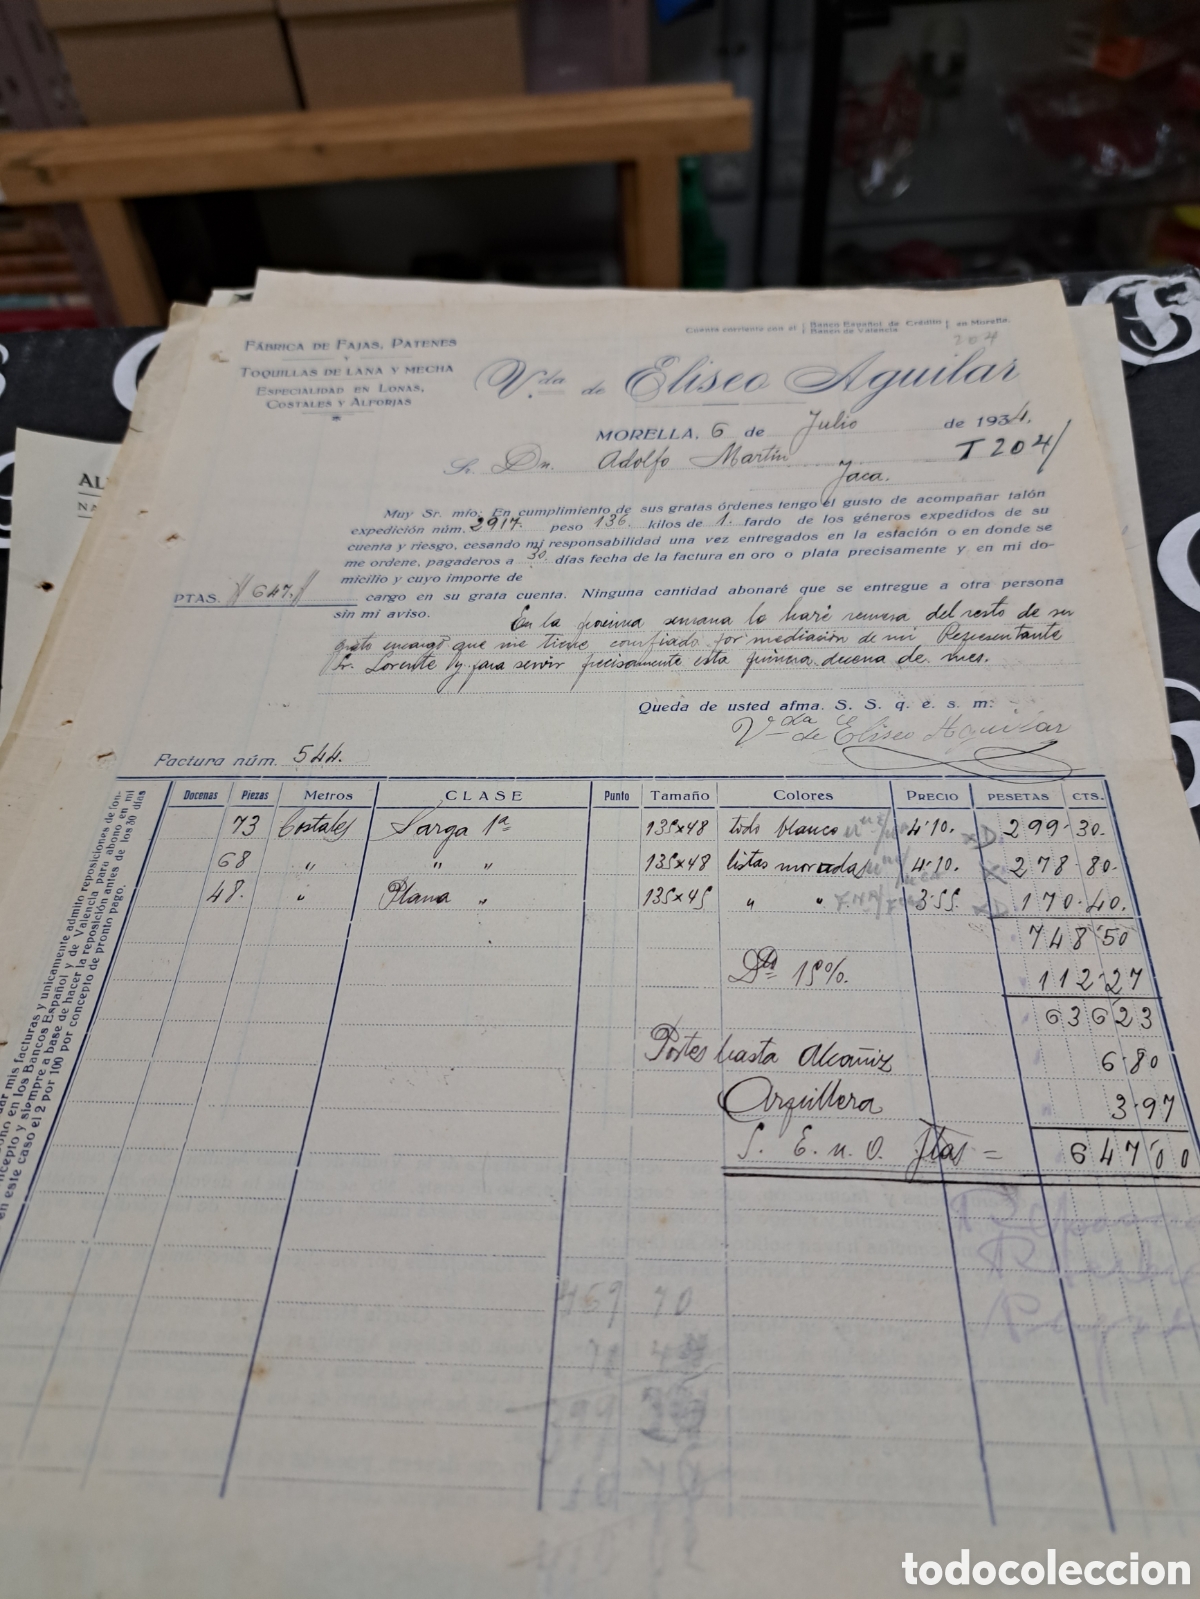 Cuenta corriente con el Banco Español de Crédito en Morella.
Banco de Valencia
204
FÁBRICA DE FAJAS, PATENES
Y
TOQUILLAS DE LANA Y MECHA
ESPECIALIDAD EN LONAS,
COSTALES Y ALFORJAS
V.da de Eliseo Aguilar
MORELLA, 6 de Julio de 1934.
Sr. Dn. Adolfo Martín T204/
Jaca.
Muy Sr. mío: En cumplimiento de sus gratas órdenes tengo el gusto de acompañar talón
expedición núm. 2917. peso 136. kilos de 1. fardo de los géneros expedidos de su
cuenta y riesgo, cesando mi responsabilidad una vez entregados en la estación o en donde se
me ordene, pagaderos a 30. días fecha de la factura en oro o plata precisamente y en mi do-
micilio y cuyo importe de
PTAS. 647. cargo en su grata cuenta. Ninguna cantidad abonaré que se entregue a otra persona
sin mi aviso. En la próxima semana lo haré remesa del resto de su
grato encargo que me tiene confiado por mediación de mi Representante
Sr. Lorente y para servir precisamente esta primera decena de mes.
Queda de usted afma. S. S. q. e. s. m:
V.da de Eliseo Aguilar
Factura núm. 544.
Docenas Piezas Metros CLASE Punto Tamaño Colores PRECIO PESETAS CTS.
73 Costales Sarga 1ª 135x48 todo blanco 4·10. 299·30.
68 " " " 135x48 listas moradas 4·10. 278·80.
48. " Plana " 135x45 " " 3·55. 170·40.
748'50
Dto 15%. 112·27
636 23
Portes hasta Alcañiz 6·80
Arpillera 3·97
S. E. u. O. Ptas = 647'00
dar mis facturas y unicamente admito reposiciones de fon-
en los Bancos Español y de Valencia para abono en mi
concepto y siempre a base de hacer la reposición antes de los 30 días
en este caso el 2 por 100 por concepto de pronto pago.
459 70
AL
NA
todocoleccion